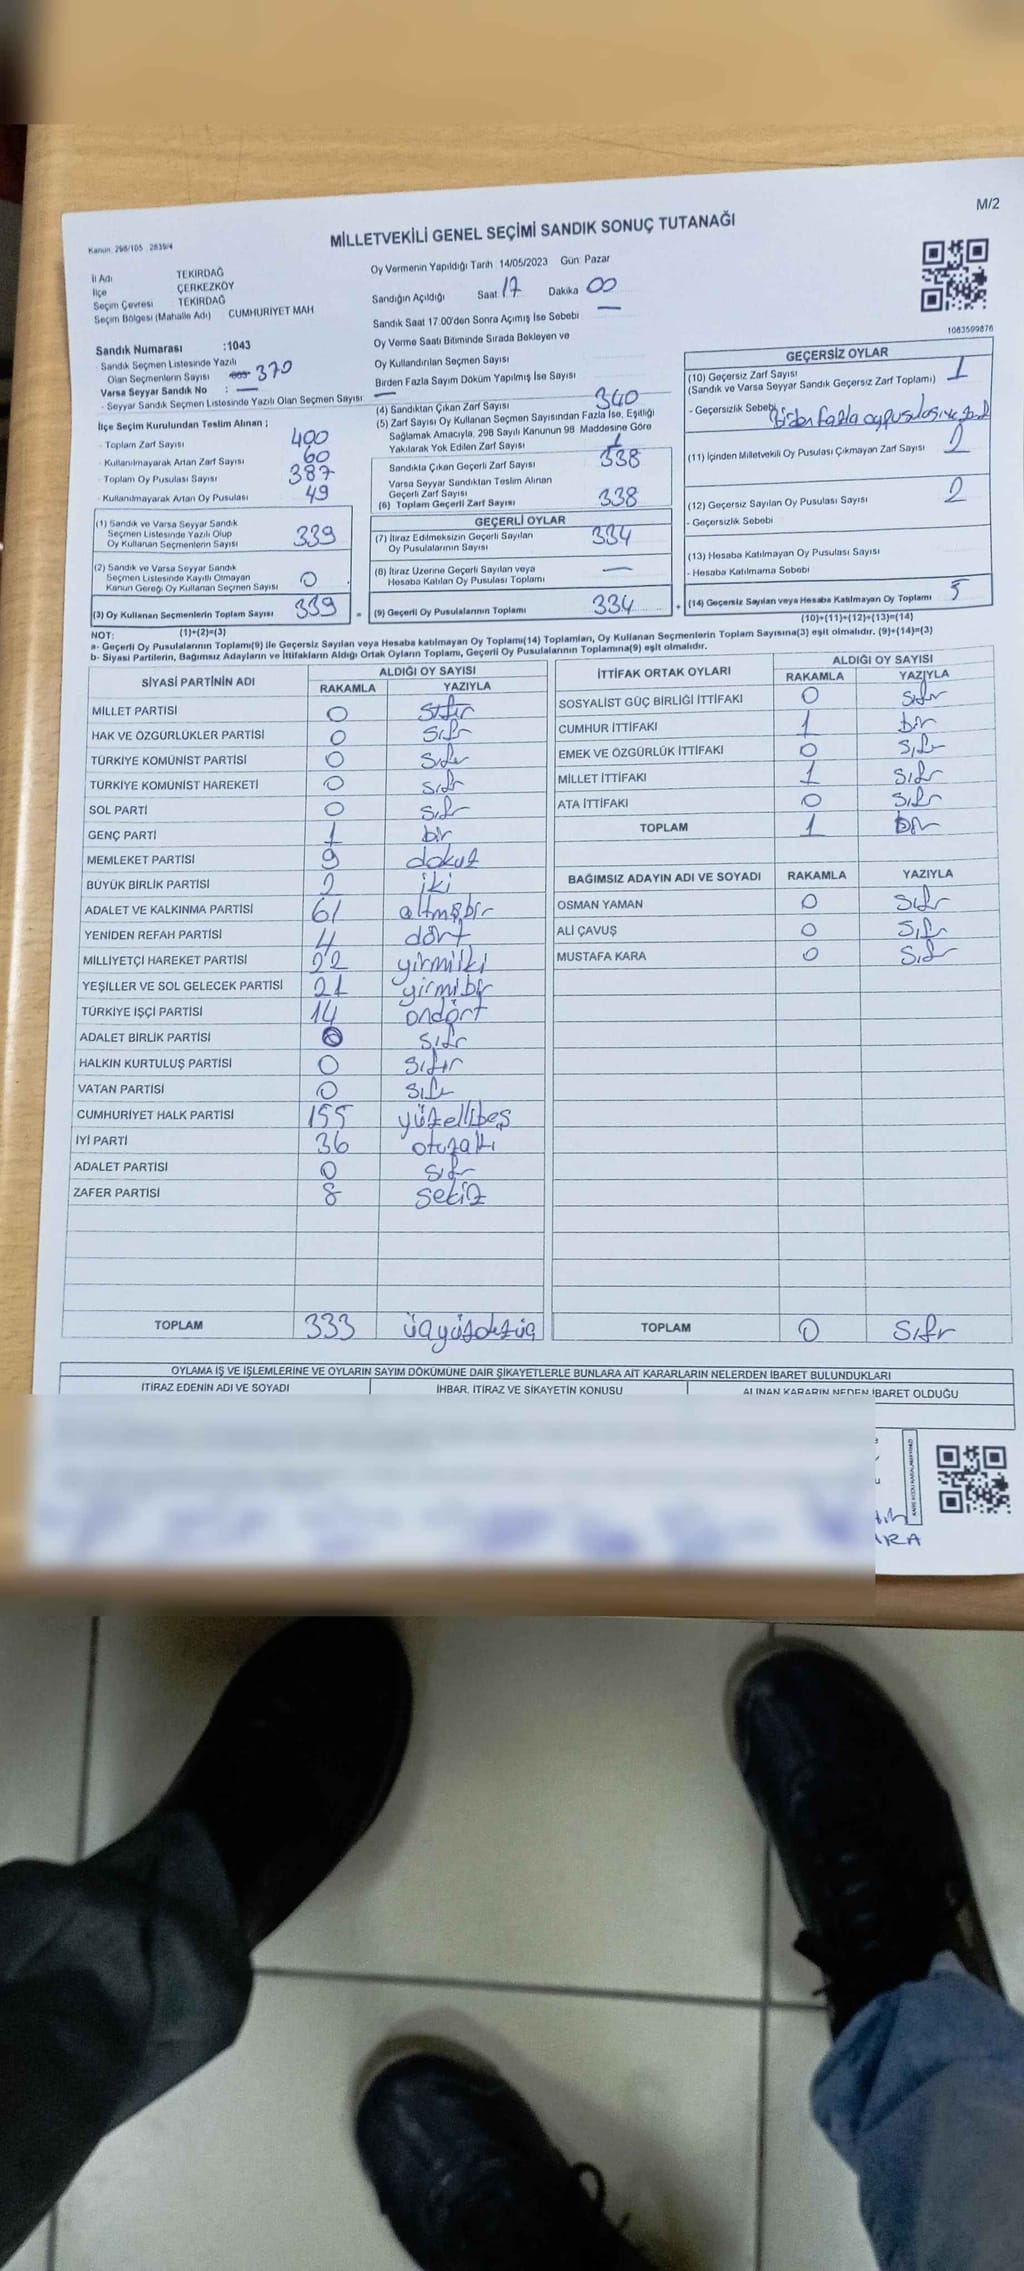 M/2
Kanun: 298/105 2839/4
MİLLETVEKİLİ GENEL SEÇİMİ SANDIK SONUÇ TUTANAĞI
İl Adı TEKİRDAĞ
İlçe ÇERKEZKÖY
Seçim Çevresi TEKİRDAĞ
Seçim Bölgesi (Mahalle Adı) CUMHURİYET MAH
Oy Vermenin Yapıldığı Tarih 14/05/2023 Gün Pazar
Sandığın Açıldığı Saat 17 Dakika 00
Sandık Saat 17.00'den Sonra Açımış İse Sebebi —
Oy Verme Saati Bitiminde Sırada Bekleyen ve
Oy Kullandırılan Seçmen Sayısı
Birden Fazla Sayım Döküm Yapılmış İse Sayısı —
1083599876
Sandık Numarası :1043
- Sandık Seçmen Listesinde Yazılı
Olan Seçmenlerin Sayısı 370
Varsa Seyyar Sandık No : —
- Seyyar Sandık Seçmen Listesinde Yazılı Olan Seçmen Sayısı:
İlçe Seçim Kurulundan Teslim Alınan ;
- Toplam Zarf Sayısı 400
- Kullanılmayarak Artan Zarf Sayısı 60
- Toplam Oy Pusulası Sayısı 387
- Kullanılmayarak Artan Oy Pusulası 49
(1) Sandık ve Varsa Seyyar Sandık
Seçmen Listesinde Yazılı Olup
Oy Kullanan Seçmenlerin Sayısı 339
(2) Sandık ve Varsa Seyyar Sandık
Seçmen Listesinde Kayıtlı Olmayan
Kanun Gereği Oy Kullanan Seçmen Sayısı 0
(3) Oy Kullanan Seçmenlerin Toplam Sayısı 339 =
(1)+(2)=(3)
(4) Sandıktan Çıkan Zarf Sayısı 340
(5) Zarf Sayısı Oy Kullanan Seçmen Sayısından Fazla İse, Eşitliği
Sağlamak Amacıyla, 298 Sayılı Kanunun 98 Maddesine Göre
Yakılarak Yok Edilen Zarf Sayısı 1
Sandıkta Çıkan Geçerli Zarf Sayısı 338
Varsa Seyyar Sandıktan Teslim Alınan
Geçerli Zarf Sayısı
(6) Toplam Geçerli Zarf Sayısı 338
GEÇERLİ OYLAR
(7) İtiraz Edilmeksizin Geçerli Sayılan
Oy Pusulalarının Sayısı 334
(8) İtiraz Üzerine Geçerli Sayılan veya
Hesaba Katılan Oy Pusulası Toplamı —
(9) Geçerli Oy Pusulalarının Toplamı 334 +
GEÇERSİZ OYLAR
(10) Geçersiz Zarf Sayısı 1
(Sandık ve Varsa Seyyar Sandık Geçersiz Zarf Toplamı)
- Geçersizlik Sebebi birden fazla oy pusulası
(11) İçinden Milletvekili Oy Pusulası Çıkmayan Zarf Sayısı 2
(12) Geçersiz Sayılan Oy Pusulası Sayısı 2
- Geçersizlik Sebebi
(13) Hesaba Katılmayan Oy Pusulası Sayısı
- Hesaba Katılmama Sebebi
(14) Geçersiz Sayılan veya Hesaba Katılmayan Oy Toplamı 5
(10)+(11)+(12)+(13)=(14)
NOT:
a- Geçerli Oy Pusulalarının Toplamı(9) ile Geçersiz Sayılan veya Hesaba katılmayan Oy Toplamı(14) Toplamları, Oy Kullanan Seçmenlerin Toplam Sayısına(3) eşit olmalıdır. (9)+(14)=(3)
b- Siyasi Partilerin, Bağımsız Adayların ve İttifakların Aldığı Ortak Oyların Toplamı, Geçerli Oy Pusulalarının Toplamına(9) eşit olmalıdır.
SİYASİ PARTİNİN ADI ALDIĞI OY SAYISI
RAKAMLA YAZIYLA
MİLLET PARTİSİ 0 sıfır
HAK VE ÖZGÜRLÜKLER PARTİSİ 0 sıfır
TÜRKİYE KOMÜNİST PARTİSİ 0 sıfır
TÜRKİYE KOMÜNİST HAREKETİ 0 sıfır
SOL PARTİ 0 sıfır
GENÇ PARTİ 1 bir
MEMLEKET PARTİSİ 9 dokuz
BÜYÜK BİRLİK PARTİSİ 2 iki
ADALET VE KALKINMA PARTİSİ 61 altmışbir
YENİDEN REFAH PARTİSİ 4 dört
MİLLİYETÇİ HAREKET PARTİSİ 22 yirmiiki
YEŞİLLER VE SOL GELECEK PARTİSİ 21 yirmibir
TÜRKİYE İŞÇİ PARTİSİ 14 ondört
ADALET BİRLİK PARTİSİ 0 sıfır
HALKIN KURTULUŞ PARTİSİ 0 sıfır
VATAN PARTİSİ 0 sıfır
CUMHURİYET HALK PARTİSİ 155 yüzellibeş
İYİ PARTİ 36 otuzaltı
ADALET PARTİSİ 0 sıfır
ZAFER PARTİSİ 8 sekiz
TOPLAM 333 üçyüzotuzüç
İTTİFAK ORTAK OYLARI ALDIĞI OY SAYISI
RAKAMLA YAZIYLA
SOSYALİST GÜÇ BİRLİĞİ İTTİFAKI 0 sıfır
CUMHUR İTTİFAKI 1 bir
EMEK VE ÖZGÜRLÜK İTTİFAKI 0 sıfır
MİLLET İTTİFAKI 1 sıfır
ATA İTTİFAKI 0 sıfır
TOPLAM 1 bir
BAĞIMSIZ ADAYIN ADI VE SOYADI RAKAMLA YAZIYLA
OSMAN YAMAN 0 sıfır
ALİ ÇAVUŞ 0 sıfır
MUSTAFA KARA 0 sıfır
TOPLAM 0 sıfır
OYLAMA İŞ VE İŞLEMLERİNE VE OYLARIN SAYIM DÖKÜMÜNE DAİR ŞİKAYETLERLE BUNLARA AİT KARARLARIN NELERDEN İBARET BULUNDUKLARI
İTİRAZ EDENİN ADI VE SOYADI İHBAR, İTİRAZ VE ŞİKAYETİN KONUSU ALINAN KARARIN NEDEN İBARET OLDUĞU